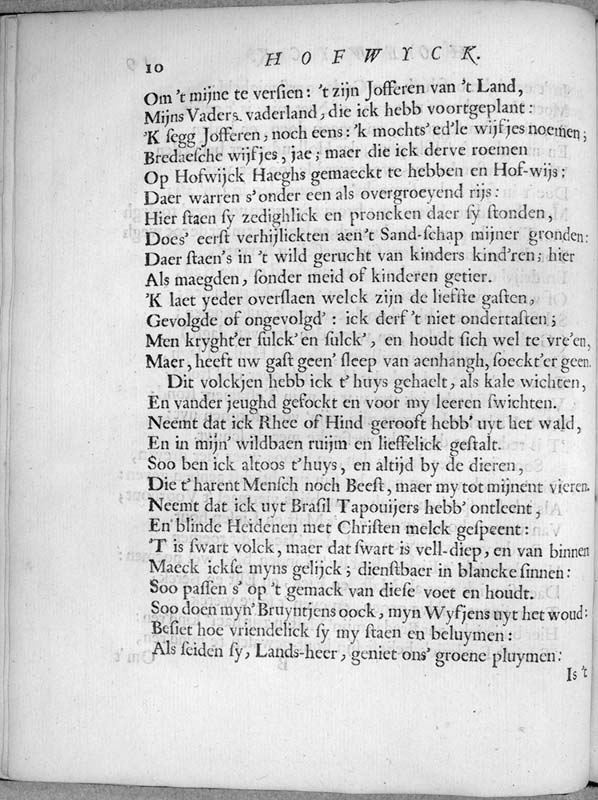 10 HOFWYCK.
Om 't mijne te versien: 't zijn Jofferen van 't Land,
Mijns Vaders vaderland, die ick hebb voortgeplant:
'K segg Jofferen, noch eens: 'k mochts' ed'le wijfjes noemen;
Bredaesche wijfjes, jae; maer die ick derve roemen
Op Hofwijck Haeghs gemaeckt te hebben en Hof-wijs:
Daer warren s' onder een als overgroeyend rijs:
Hier staen sy zedighlick en proncken daer sy stonden,
Does' eerst verhijlickten aen't Sand-schap mijner gronden:
Daer staen's in 't wild gerucht van kinders kind'ren; hier
Als maegden, sonder meid of kinderen getier.
'K laet yeder overslaen welck zijn de liefste gasten,
Gevolgde of ongevolgd': ick derf 't niet ondertasten;
Men kryght'er sulck' en sulck', en houdt sich wel te vre'en,
Maer, heeft uw gast geen' sleep van aenhangh, soeckt'er geen.
Dit volckjen hebb ick t' huys gehaelt, als kale wichten,
En vander jeughd gefockt en voor my leeren swichten.
Neemt dat ick Rhee of Hind gerooft hebb' uyt het wald,
En in mijn' wildbaen ruijm en lieffelick gestalt.
Soo ben ick altoos t'huys, en altijd by de dieren,
Die t'harent Mensch noch Beest, maer my tot mijnent vieren.
Neemt dat ick uyt Brasil Tapouijers hebb' ontleent,
En blinde Heidenen met Christen melck gespeent:
'T is swart volck, maer dat swart is vell-diep, en van binnen
Maeck ickse myns gelijck; dienstbaer in blancke sinnen:
Soo passen s' op 't gemack van diese voet en houdt.
Soo doen myn' Bruyntjens oock, myn Wyfjens uyt het woud:
Besiet hoe vriendelick sy my staen en beluymen:
Als seiden sy, Lands-heer, geniet ons' groene pluymen:
Is 't